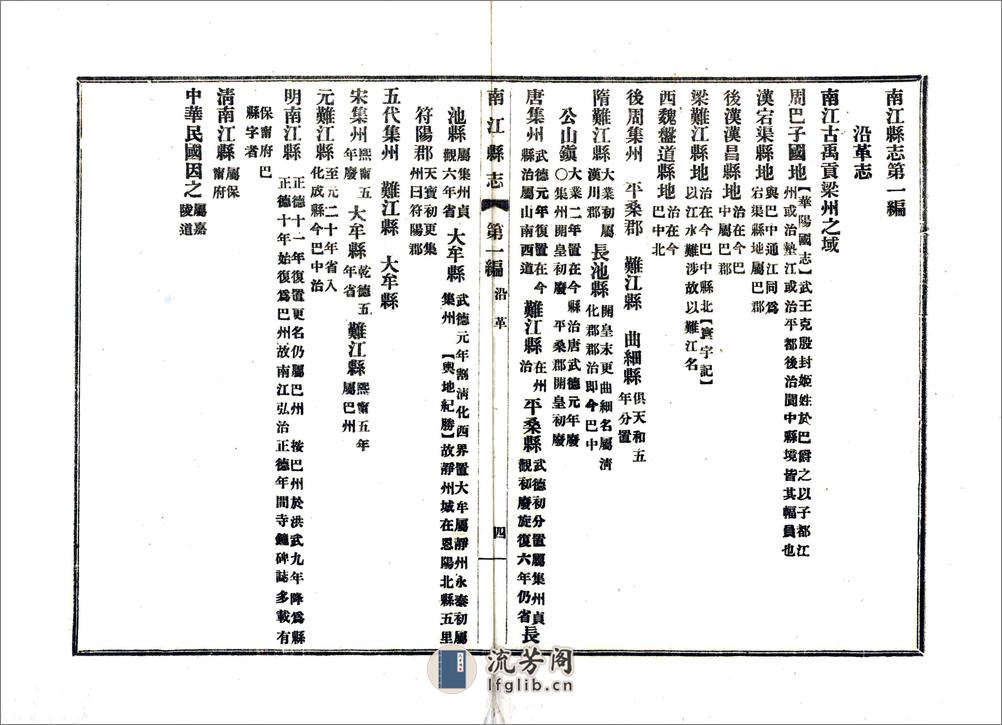 南江縣志第一編
沿革志
南江古禹貢梁州之域
周巴子國地【華陽國志】武王克殷封姬姓於巴爵之以子都江州或治墊江或治平都後治閬中縣境皆其幅員也
漢宕渠縣地 與巴中通江同爲宕渠縣地屬巴郡
後漢漢昌縣地 治在今巴中屬巴郡
梁難江縣地 治在今巴中縣北【寰宇記】以江水難涉故以難江名
西魏盤道縣地 治在今巴中北
後周集州 平桑郡 難江縣 曲細縣 俱天和五年分置
隋難江縣 大業初屬漢川郡 長池縣 開皇末更曲細名屬清化郡郡治即今巴中
公山鎭 大業二年置在今縣治唐武德元年廢〇集州開皇初廢 平桑郡開皇初廢
唐集州 武德元年復置在今縣治屬山南西道 難江縣 在州治 平桑縣 武德初分置屬集州貞觀初廢旋復六年仍省 長
南江縣志 第一編 沿革 四
池縣 屬集州貞觀六年省 大牟縣 武德元年割清化西界置大牟屬靜州永泰初屬集州 【輿地紀勝】故靜州城在恩陽北縣五里
符陽郡 天寶初更集州曰符陽郡
五代集州 難江縣 大牟縣
宋集州 熙甯五年廢 大牟縣 乾德五年省 難江縣 熙甯五年屬巴州
元難江縣 至元二十年省入化成縣今巴中治
明南江縣 正德十一年復置更名仍屬巴州 按巴州於洪武九年降爲縣正德十年始復爲巴州故南江弘治正德年間寺鐘碑誌多載有
保甯府巴縣字者
清南江縣 屬保甯府
中華民國因之 屬嘉陵道
流芳阁
lfglib.cn